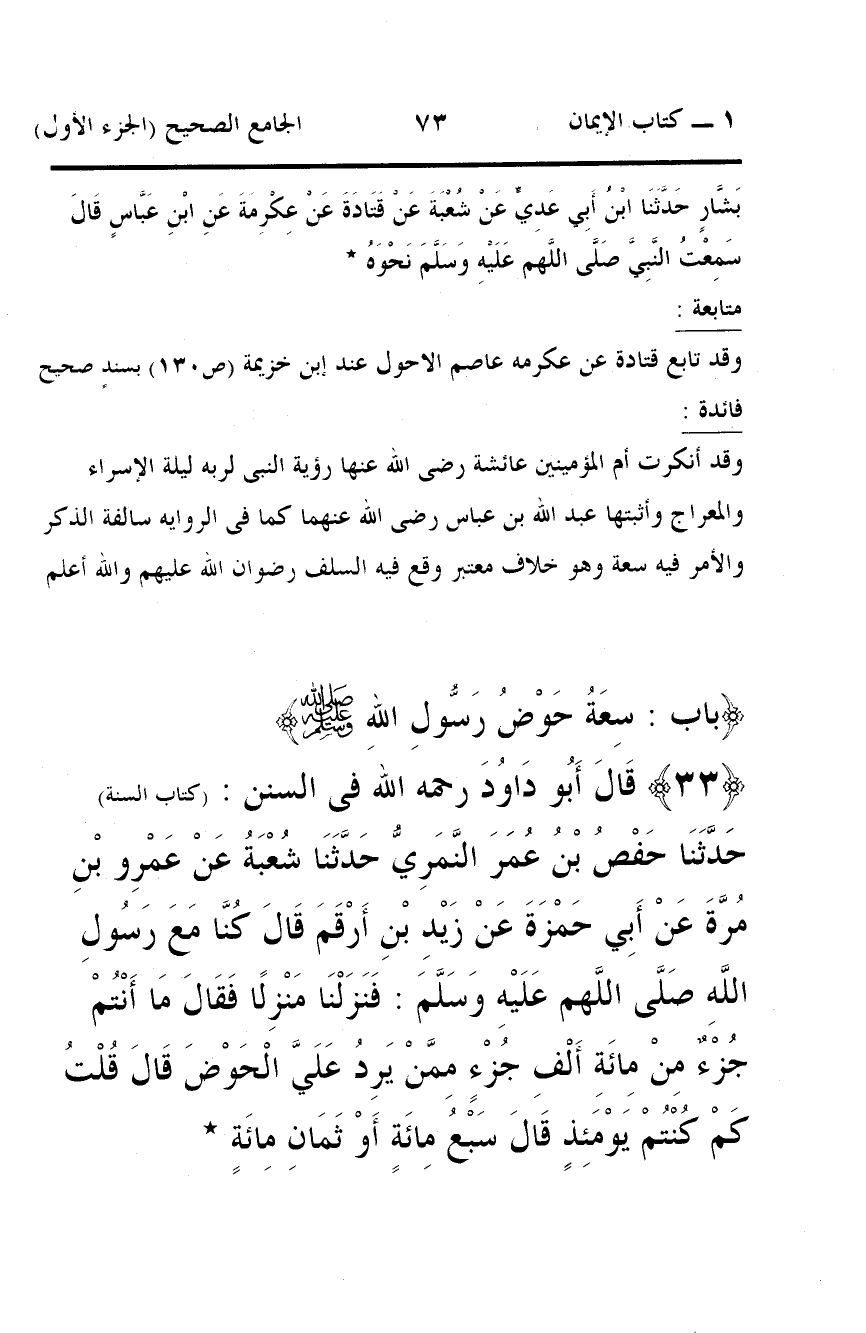 ١ ــ كتاب الإيمان ٧٣ الجامع الصحيح (الجزء الأول)
بَشَّارٍ حَدَّثَنَا ابْنُ أَبِي عَدِيٍّ عَنْ شُعْبَةَ عَنْ قَتَادَةَ عَنْ عِكْرِمَةَ عَنِ ابْنِ عَبَّاسٍ قَالَ
سَمِعْتُ النَّبِيَّ صَلَّى اللَّهم عَلَيْهِ وَسَلَّمَ نَحْوَهُ *
متابعة :
وقد تابع قتادة عن عكرمه عاصم الاحول عند إبن خزيمة (ص١٣٠) بسندٍ صحيح
فائدة :
وقد أنكرت أم المؤمينين عائشة رضى الله عنها رؤية النبى لربه ليلة الإسراء
والمعراج وأثبتها عبد الله بن عباس رضى الله عنهما كما فى الروايه سالفة الذكر
والأمر فيه سعة وهو خلاف معتبر وقع فيه السلف رضوان الله عليهم والله أعلم
﴿باب : سِعَةُ حَوْضُ رَسُّولِ اللهِ ﷺ﴾
﴿٣٣﴾ قَالَ أَبُو دَاوُدَ رحمه الله فى السنن : (كتاب السنة)
حَدَّثَنَا حَفْصُ بْنُ عُمَرَ النَّمَرِيُّ حَدَّثَنَا شُعْبَةُ عَنْ عَمْرِو بْنِ
مُرَّةَ عَنْ أَبِي حَمْزَةَ عَنْ زَيْدِ بْنِ أَرْقَمَ قَالَ كُنَّا مَعَ رَسُولِ
اللَّهِ صَلَّى اللَّهم عَلَيْهِ وَسَلَّمَ : فَنَزَلْنَا مَنْزِلًا فَقَالَ مَا أَنْتُمْ
جُزْءٌ مِنْ مِائَةِ أَلْفِ جُزْءٍ مِمَّنْ يَرِدُ عَلَيَّ الْحَوْضَ قَالَ قُلْتُ
كَمْ كُنْتُمْ يَوْمَئِذٍ قَالَ سَبْعُ مِائَةٍ أَوْ ثَمَانِ مِائَةٍ *